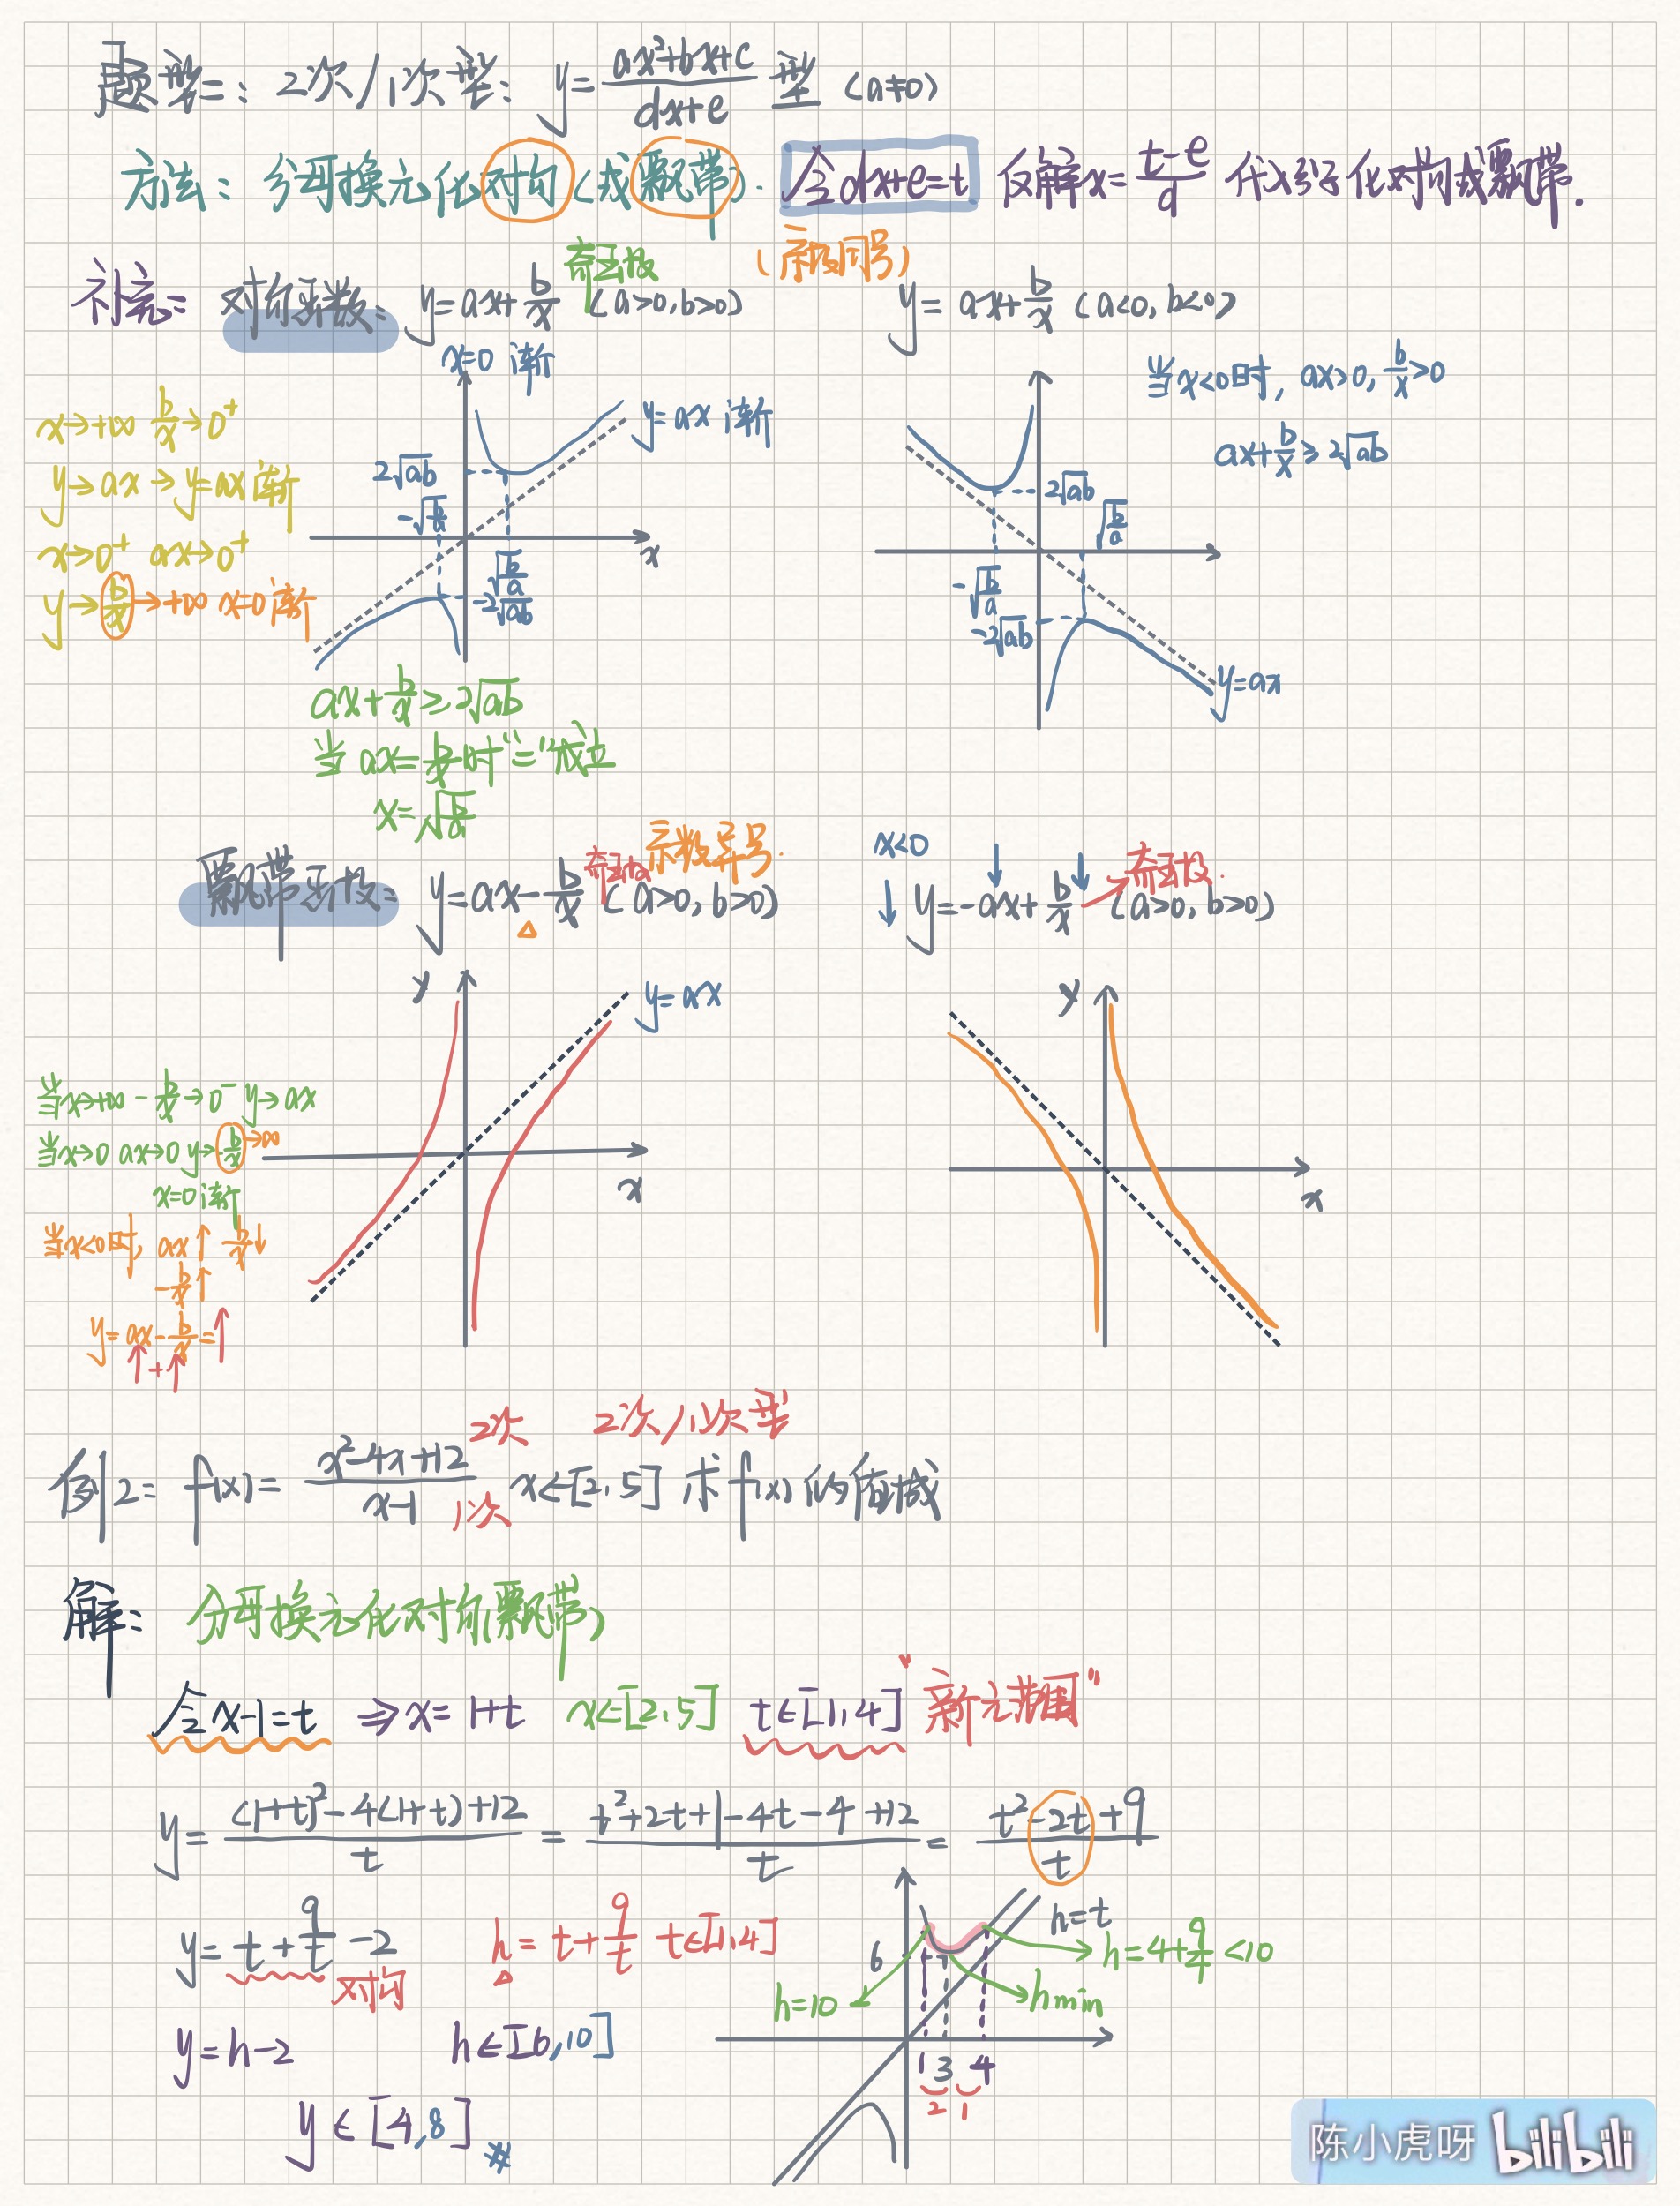 题型二：2次/1次型：y=(ax²+bx+c)/(dx+e) 型 (a≠0)
方法：分母换元化对勾(或飘带). 令dx+e=t 反解x=(t-e)/d 代入分子化对勾或飘带.
(系数同号)
补充：对勾函数：y=ax+b/x (a>0,b>0) 奇函数
y=ax+b/x (a<0,b<0)
x=0 渐
y=ax 渐
x→+∞ b/x→0⁺
y→ax → y=ax 渐
x→0⁺ ax→0⁺
y→b/x→+∞ x=0 渐
2√ab
-√(b/a)
√(b/a)
-2√ab
x
ax+b/x≥2√ab
当 ax=b/x时"="成立
x=√(b/a)
当x<0时, ax>0, b/x>0
ax+b/x≥2√ab
2√ab
√(b/a)
-√(b/a)
-2√ab
y=ax
飘带函数：y=ax-b/x (a>0,b>0) 奇函数 系数异号.
x<0 y=-ax+b/x (a>0,b>0) 奇函数.
y
y=ax
x
当x→+∞ -b/x→0⁻ y→ax
当x→0 ax→0 y→-b/x→∞
x=0渐
当x<0时, ax↑ b/x↓
-b/x↑
y=ax-b/x=↑
↑+↑
y
x
2次 2次/1次型
例2：f(x)=(x²-4x+12)/(x-1) x∈[2,5] 求f(x)的值域
1次
解：分母换元化对勾(飘带)
令x-1=t ⇒x=1+t x∈[2,5] t∈[1,4] "新元范围"
y=((1+t)²-4(1+t)+12)/t=(t²+2t+1-4t-4+12)/t=(t²-2t+9)/t
y=t+9/t-2 对勾 h=t+9/t t∈[1,4]
y=h-2 h∈[6,10]
y∈[4,8] #
h=t
6
h=4+9/4<10
h=10
hmin
1 3 4
2 1
陈小虎呀 bilibili